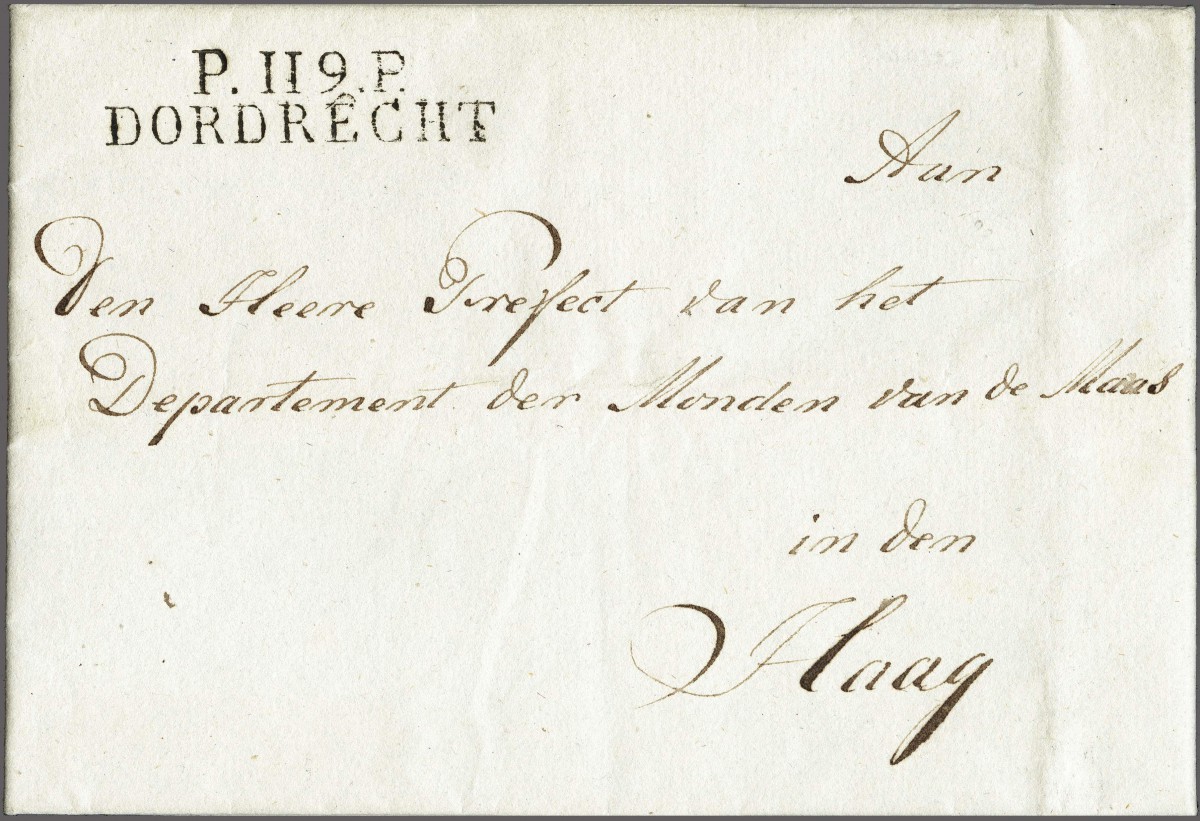 P. 119. P.
DORDRÊCHT
Aan
Den Heere Prefect van het
Departement der Monden van de Maas
in den
Haag